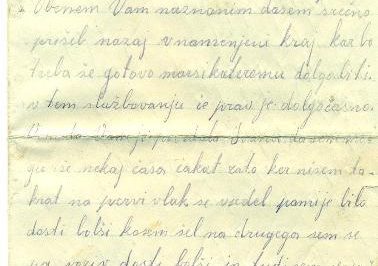 Obenem Vam naznanim da sem srečno
prišel nazaj v namenjeni kraj, kar bo
treba še gotovo marsikateremu dolgo biti
v tem službovanju če prav je dolgočasno.
da sem
še nekaj časa čakat zato ker nisem ta-
krat na prvi vlak se vsedel pa mi je bilo
dosti bolši ko sem šel na drugega sem se
dosti bolši in tudi